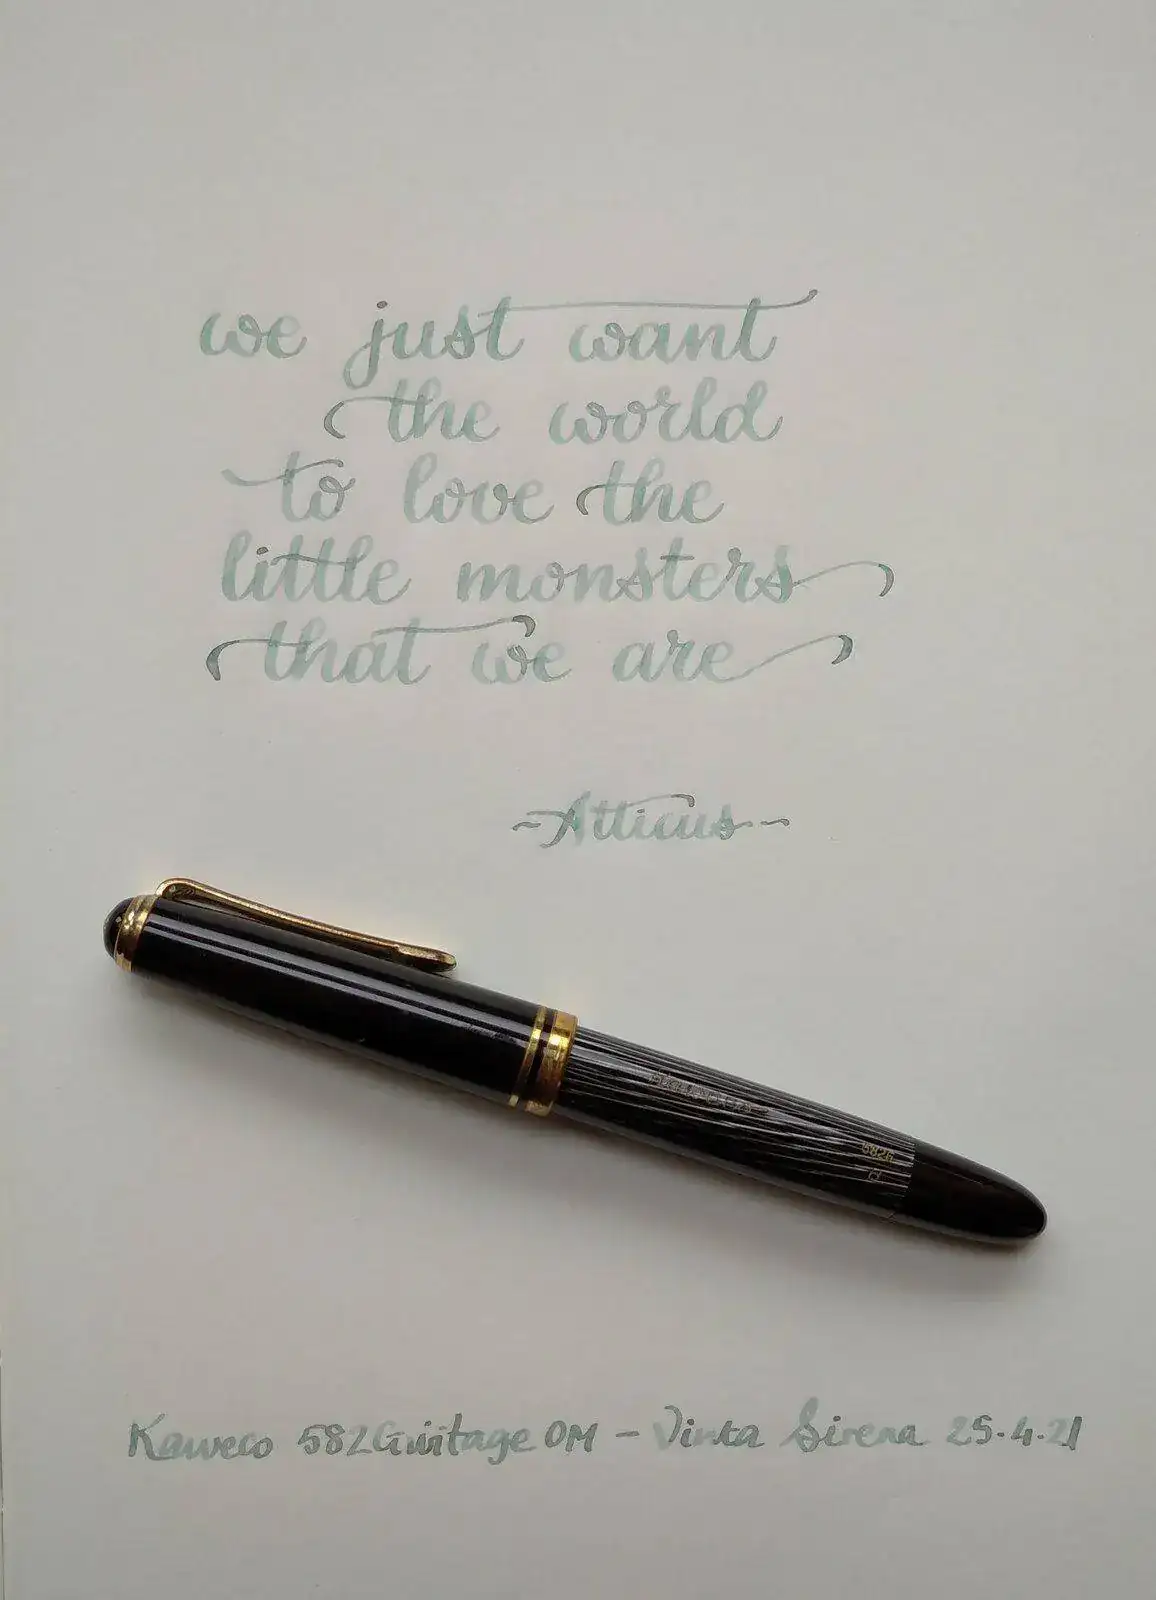 we just want
the world
to love the
little monsters
that we are
~Atticus~
582G
Kaweco 582G vintage OM - Vinta Sirena 25.4.21